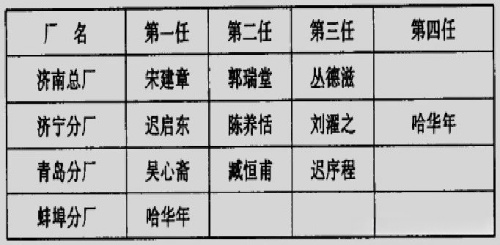 厂 名 第一任 第二任 第三任 第四任
济南总厂 宋建章 郭瑞堂 丛德滋
济宁分厂 迟启东 陈养恬 刘濯之 哈华年
青岛分厂 吴心斋 臧恒甫 迟序程
蚌埠分厂 哈华年